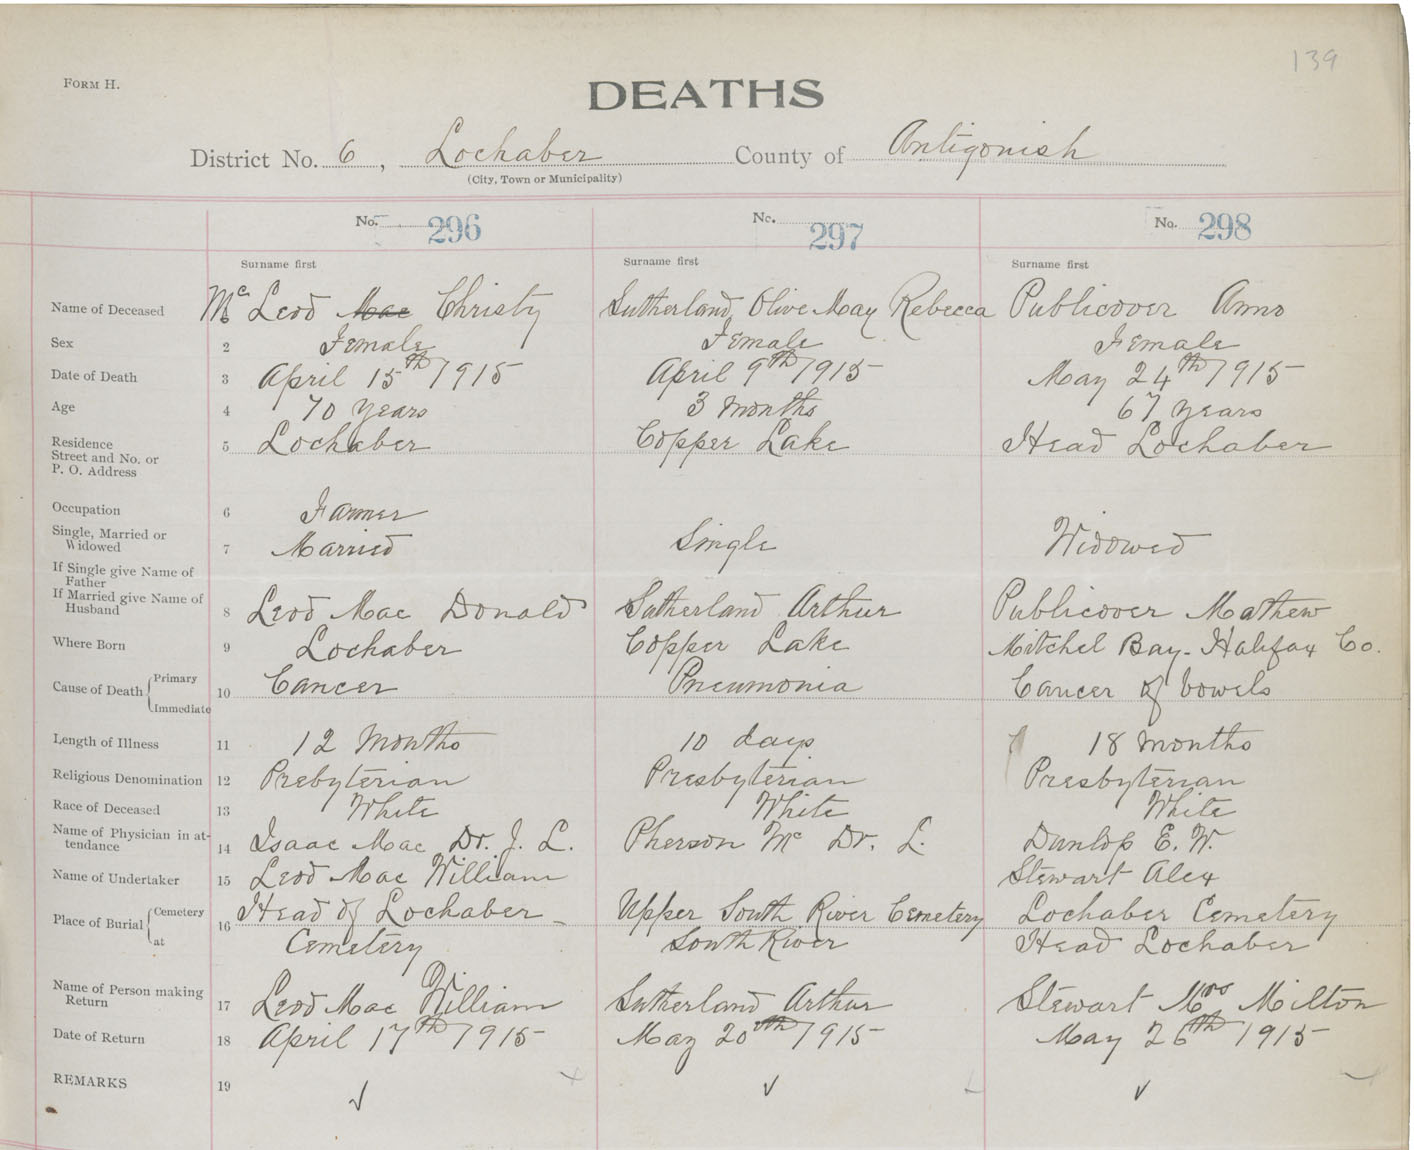 139
FORM H.
DEATHS
District No. 6, Lochaber County of Antigonish
(City, Town or Municipality)
No. 296 No. 297 No. 298
Surname first Surname first Surname first
Name of Deceased Mc Leod Mac Christy Sutherland Olive May Rebecca Publicover Anno
Sex 2 Female Female Female
Date of Death 3 April 15th 1915 April 9th 1915 May 24th 1915
Age 4 70 years 3 Months 67 years
Residence
Street and No. or
P. O. Address 5 Lochaber Copper Lake Head Lochaber
Occupation 6 Farmer
Single, Married or
Widowed 7 Married Single Widowed
If Single give Name of
Father
If Married give Name of
Husband 8 Leod Mac Donald Sutherland Arthur Publicover Mathew
Where Born 9 Lochaber Copper Lake Mitchel Bay - Halifax Co.
Cause of Death Primary
Immediate 10 Cancer Pneumonia Cancer of bowels
Length of Illness 11 12 Months 10 days 18 months
Religious Denomination 12 Prebyterian Presbyterian Presbyterian
Race of Deceased 13 White White White
Name of Physician in at-
tendance 14 Isaac Mac Dr. J. L. Pherson Mc Dr. L. Dunlop E. W.
Name of Undertaker 15 Leod Mac William Stewart Alex
Place of Burial Cemetery
at 16 Head of Lochaber - Upper South River Cemetery Lochaber Cemetery
Cemetery South River Head Lochaber
Name of Person making
Return 17 Leod Mac William Sutherland Arthur Stewart Mrs Milton
Date of Return 18 April 17th 1915 May 20th 1915 May 26th 1915
REMARKS 19 ✓ ✓ ✓